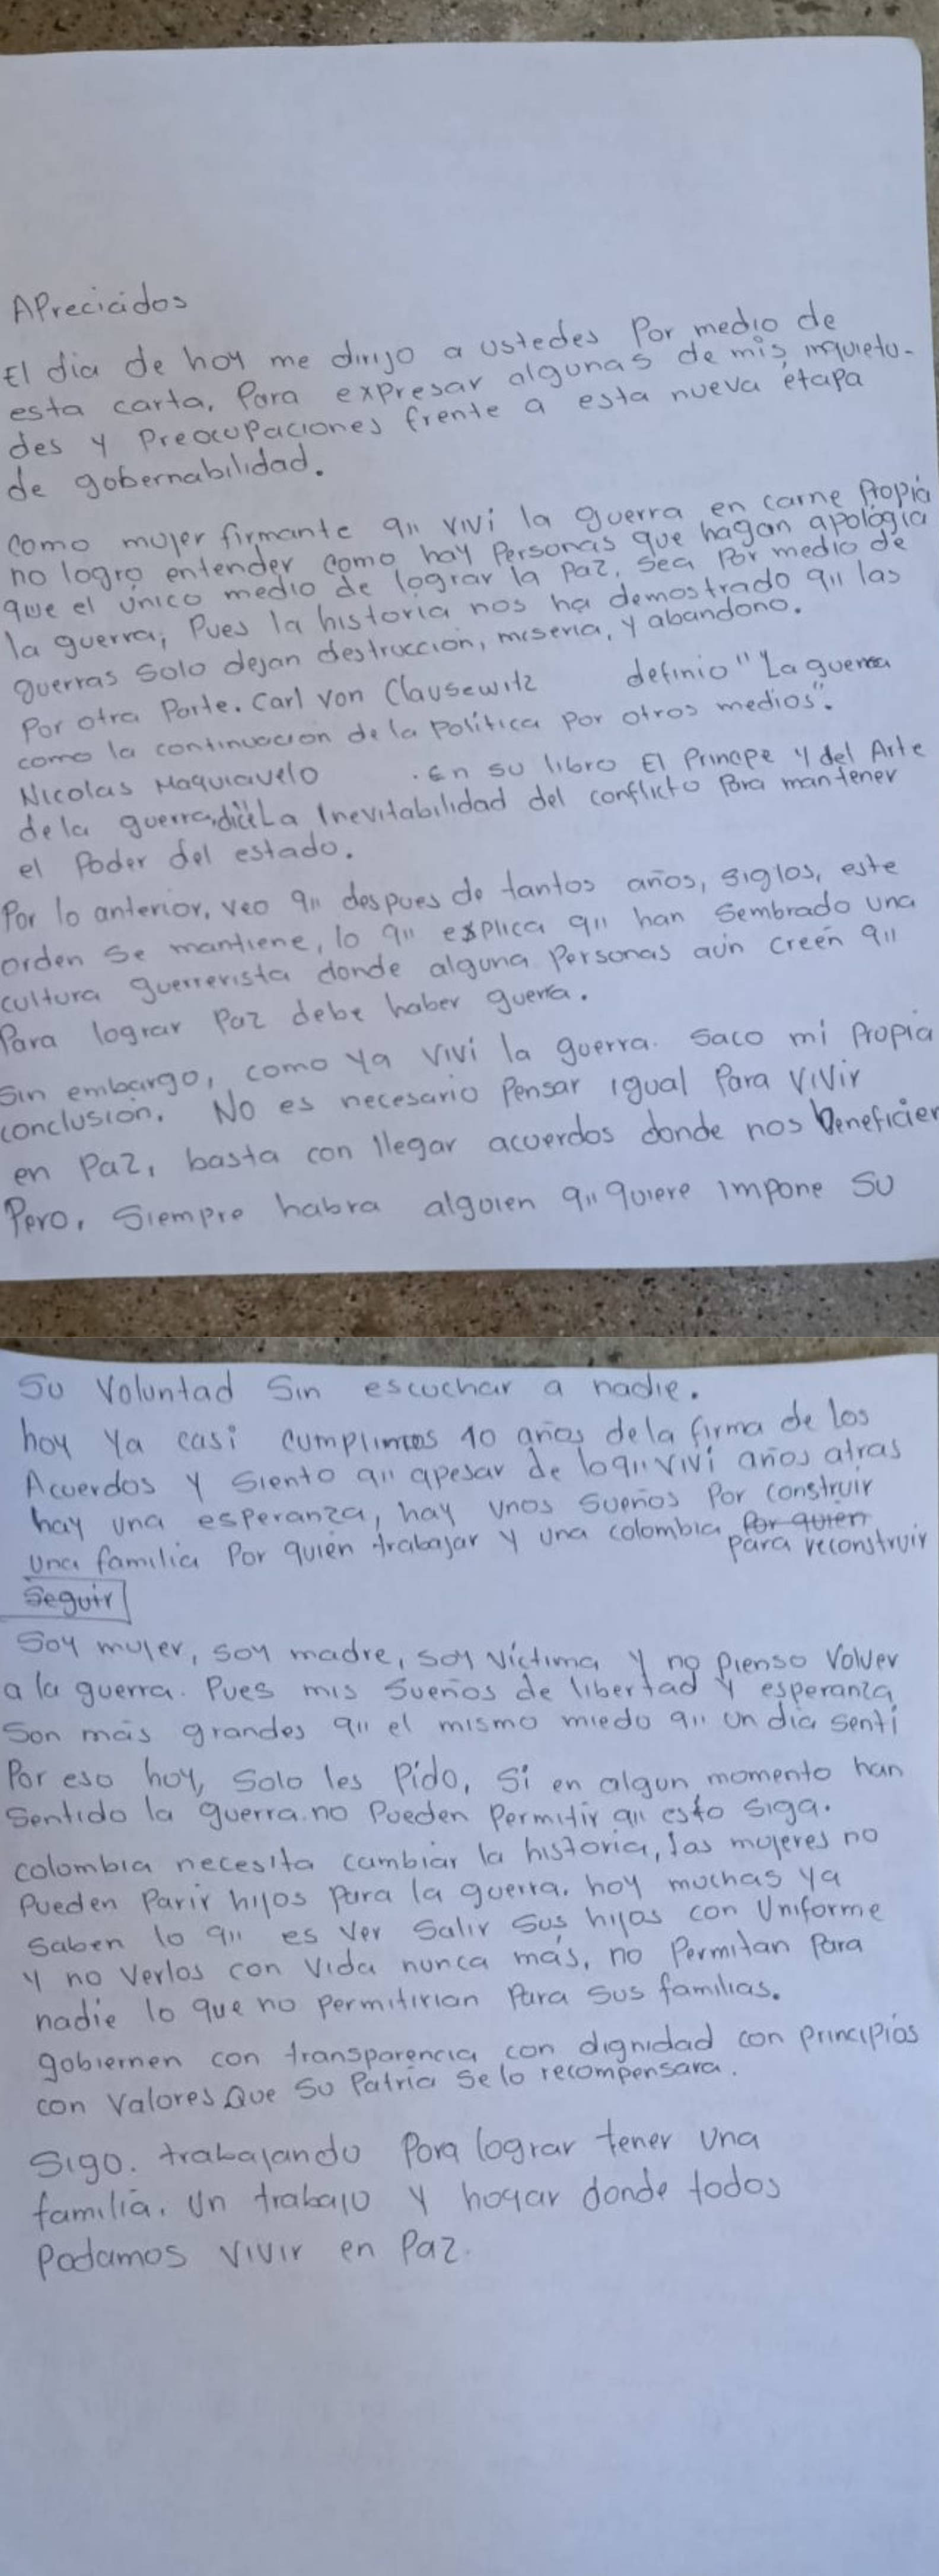 APreciados
El dia de hoy me dirijo a ustedes Por medio de
esta carta. Para expresar algunas de mis inquietu-
des y Preocupaciones frente a esta nueva etapa
de gobernabilidad.
como mujer firmante q11 vivi la guerra en carne Propia
no logro entender como hay Personas que hagan apologia
que el único medio de lograr la paz. sea por medio de
la guerra; Pues la historia nos ha demostrado q11 las
guerras solo dejan destrucción, miseria, y abandono.
Por otra Parte. Carl von Clausewitz definio "La guerra
como la continuacion de la política por otros medios".
Nicolas Maquiavelo . En su libro El Principe y del Arte
de la guerra, dice La Inevitabilidad del conflicto Para mantener
el Poder del estado.
Por lo anterior, veo q11 despues de tantos años, siglos, este
orden se mantiene, lo q11 explica q11 han sembrado una
cultura guerrerista donde alguna Personas aún creen q11
Para lograr Paz debe haber guerra.
Sin embargo, como ya viví la guerra. saco mi propia
conclusión. No es necesario Pensar igual Para vivir
en Paz, basta con llegar acuerdos donde nos beneficien
Pero, Siempre habra alguien q11 quiere impone su
su Voluntad Sin escuchar a nadie.
hoy ya casi cumplimos 10 años de la firma de los
Acuerdos y siento q11 apesar de lo q11 viví años atras
hay una esperanza, hay unos sueños Por construir
una familia Por quien trabajar y una colombia Por quien
para reconstruir
Seguir
Soy mujer, soy madre, soy víctima y no pienso Volver
a la guerra. Pues mis sueños de libertad y esperanza
Son más grandes q11 el mismo miedo q11 un dia sentí
Por eso hoy, solo les Pido, si en algun momento han
Sentido la guerra. no Pueden Permitir q11 esto siga.
colombia necesita cambiar la historia, las mujeres no
Pueden Parir hijos para la guerra. hoy muchas ya
saben lo q11 es ver salir sus hijos con Uniforme
y no verlos con vida nunca más, no Permitan Para
nadie lo que no permitirian Para sus familias.
gobiernen con transparencia con dignidad con principios
con Valores Que su Patria se lo recompensara.
Sigo. trabajando Para lograr tener una
familia. Un trabajo y hogar donde todos
Podamos vivir en Paz.